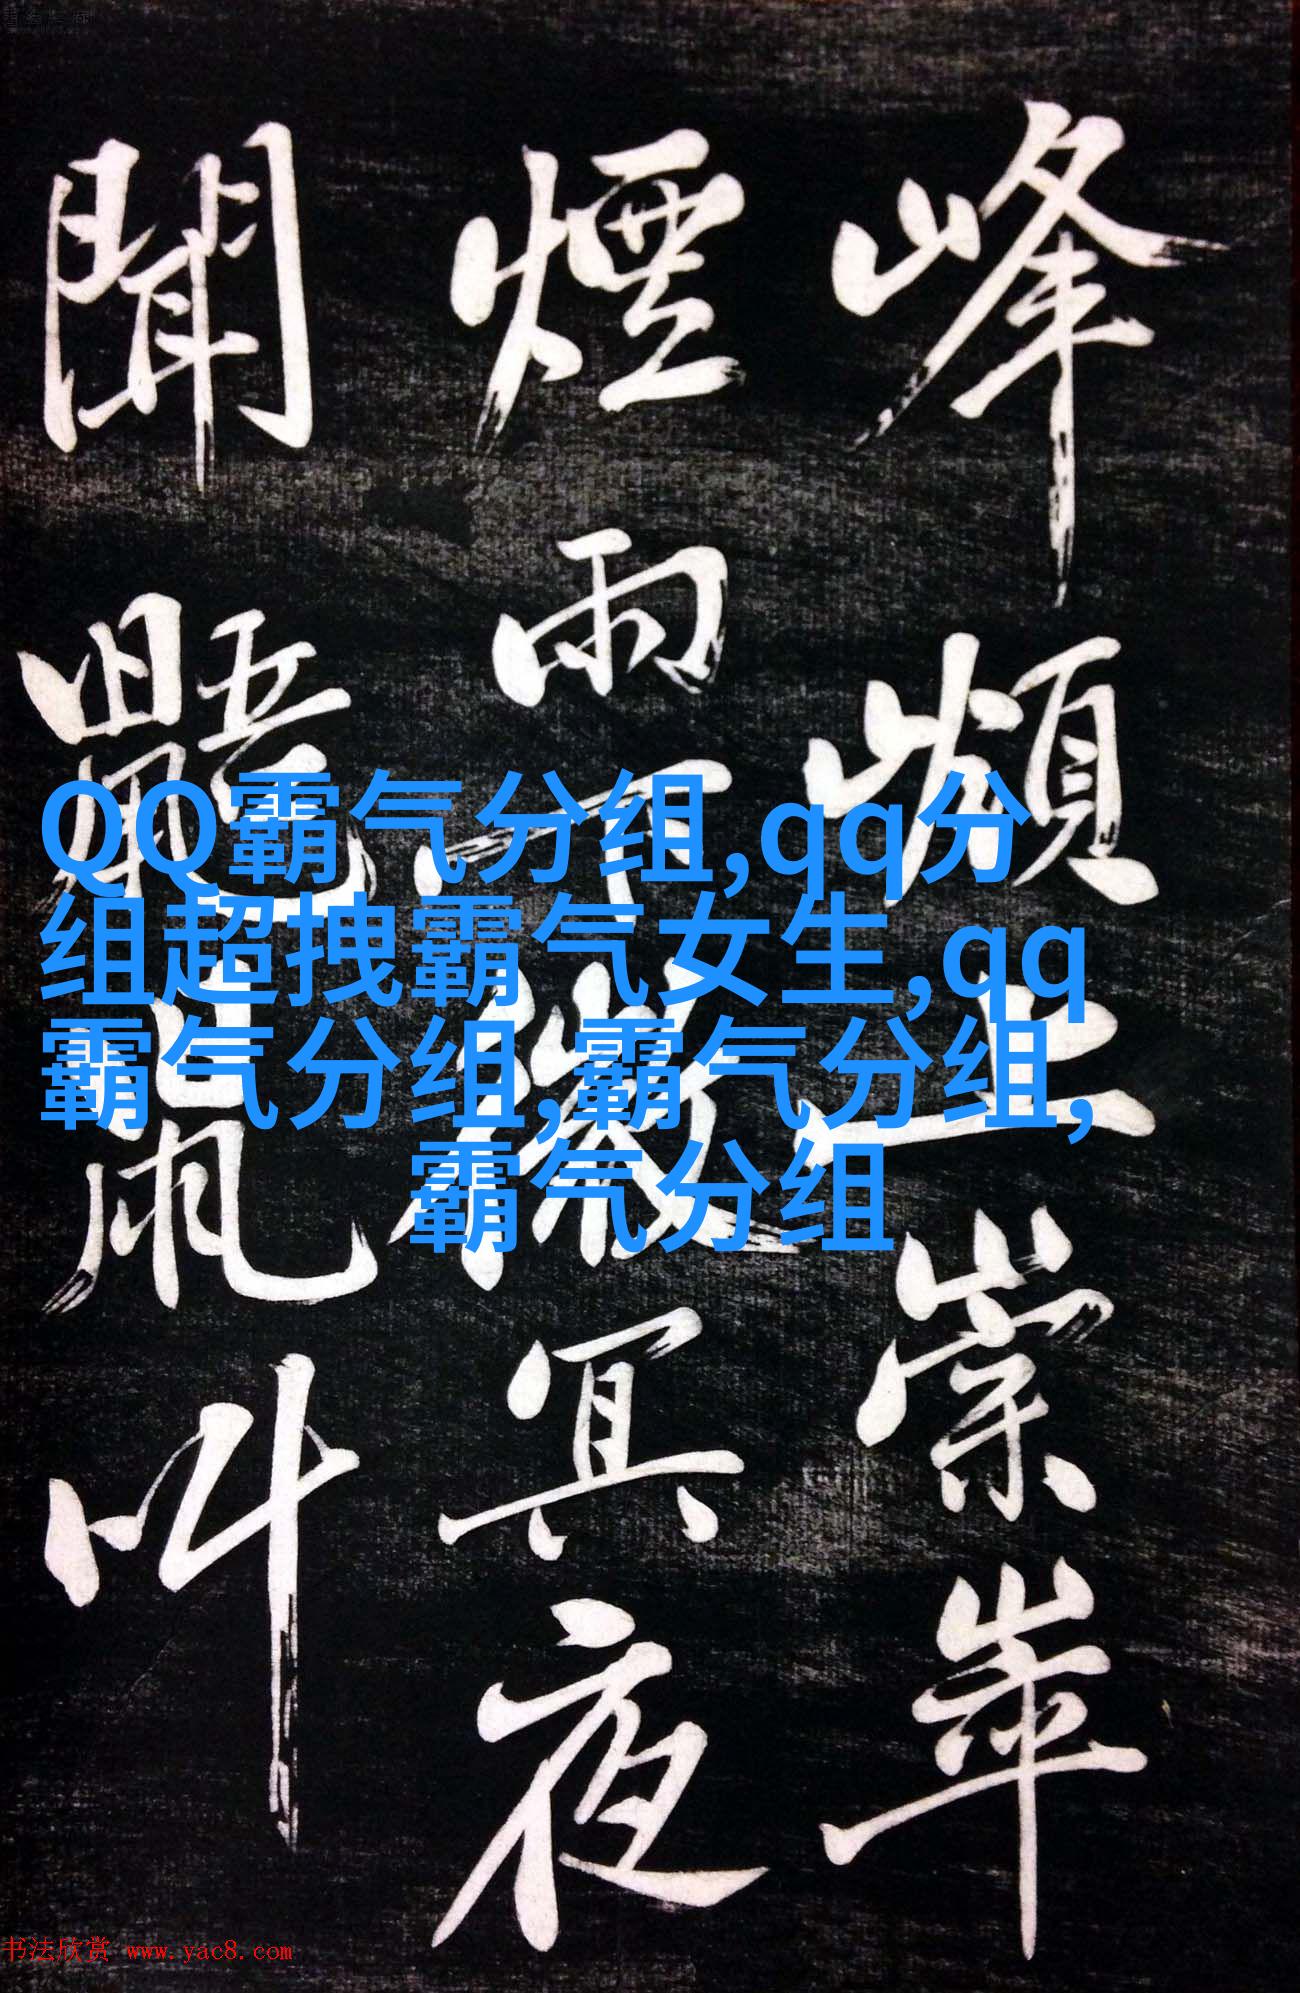 峰上崇崒
煙雨下微冥夜
聞鼯鼠叫
QQ霸气分组,qq分
组超拽霸气女生,qq
霸气分组,霸气分组,
霸气分组
书法欣赏 www.yac8.com